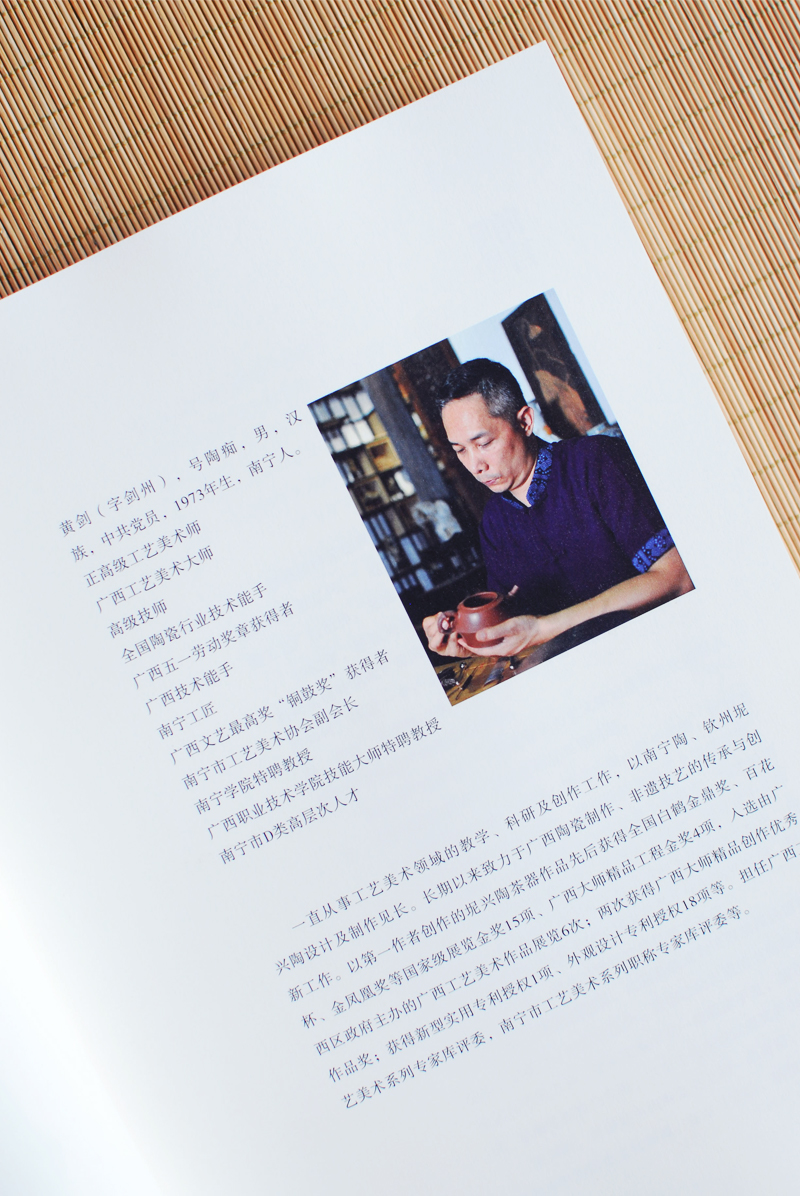 黄剑（字剑州），号陶痴，男，汉
族，中共党员，1973年生，南宁人。
正高级工艺美术师
广西工艺美术大师
高级技师
全国陶瓷行业技术能手
广西五一劳动奖章获得者
广西技术能手
南宁工匠
广西文艺最高奖“铜鼓奖”获得者
南宁市工艺美术协会副会长
南宁学院特聘教授
广西职业技术学院技能大师特聘教授
南宁市D类高层次人才
一直从事工艺美术领域的教学、科研及创作工作，以南宁陶、钦州坭
兴陶设计及制作见长。长期以来致力于广西陶瓷制作、非遗技艺的传承与创
新工作。以第一作者创作的坭兴陶茶器作品先后获得全国白鹤金鼎奖、百花
杯、金凤凰奖等国家级展览金奖15项、广西大师精品工程金奖4项，入选由广
西区政府主办的广西工艺美术作品展览6次；两次获得广西大师精品创作优秀
作品奖；获得新型实用专利授权1项、外观设计专利授权18项等。担任广西工
艺美术系列专家库评委，南宁市工艺美术系列职称专家库评委等。